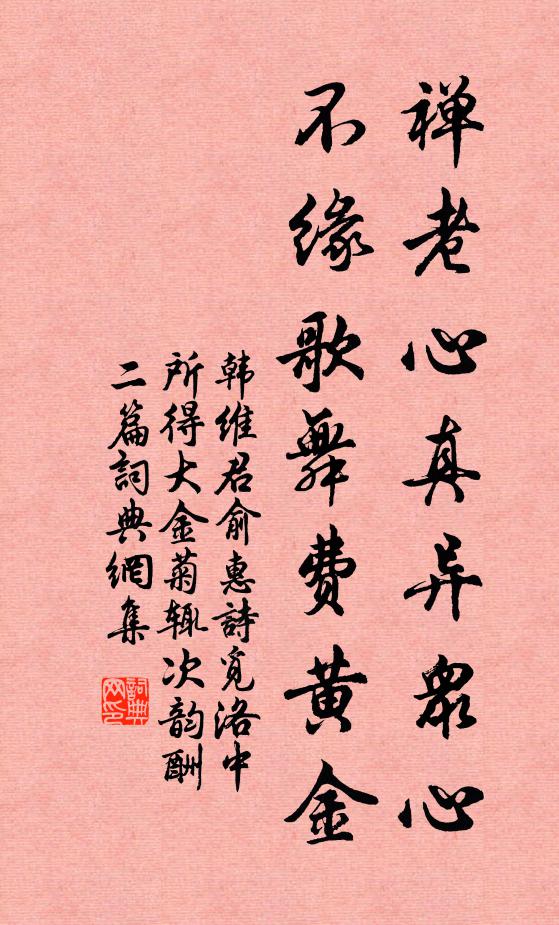 禅老心真异衆心
不缘歌舞费黄金
韩维君俞惠詩覓洛中
所得大金菊辄次韵酬
二篇詞典網集
詞典
网印